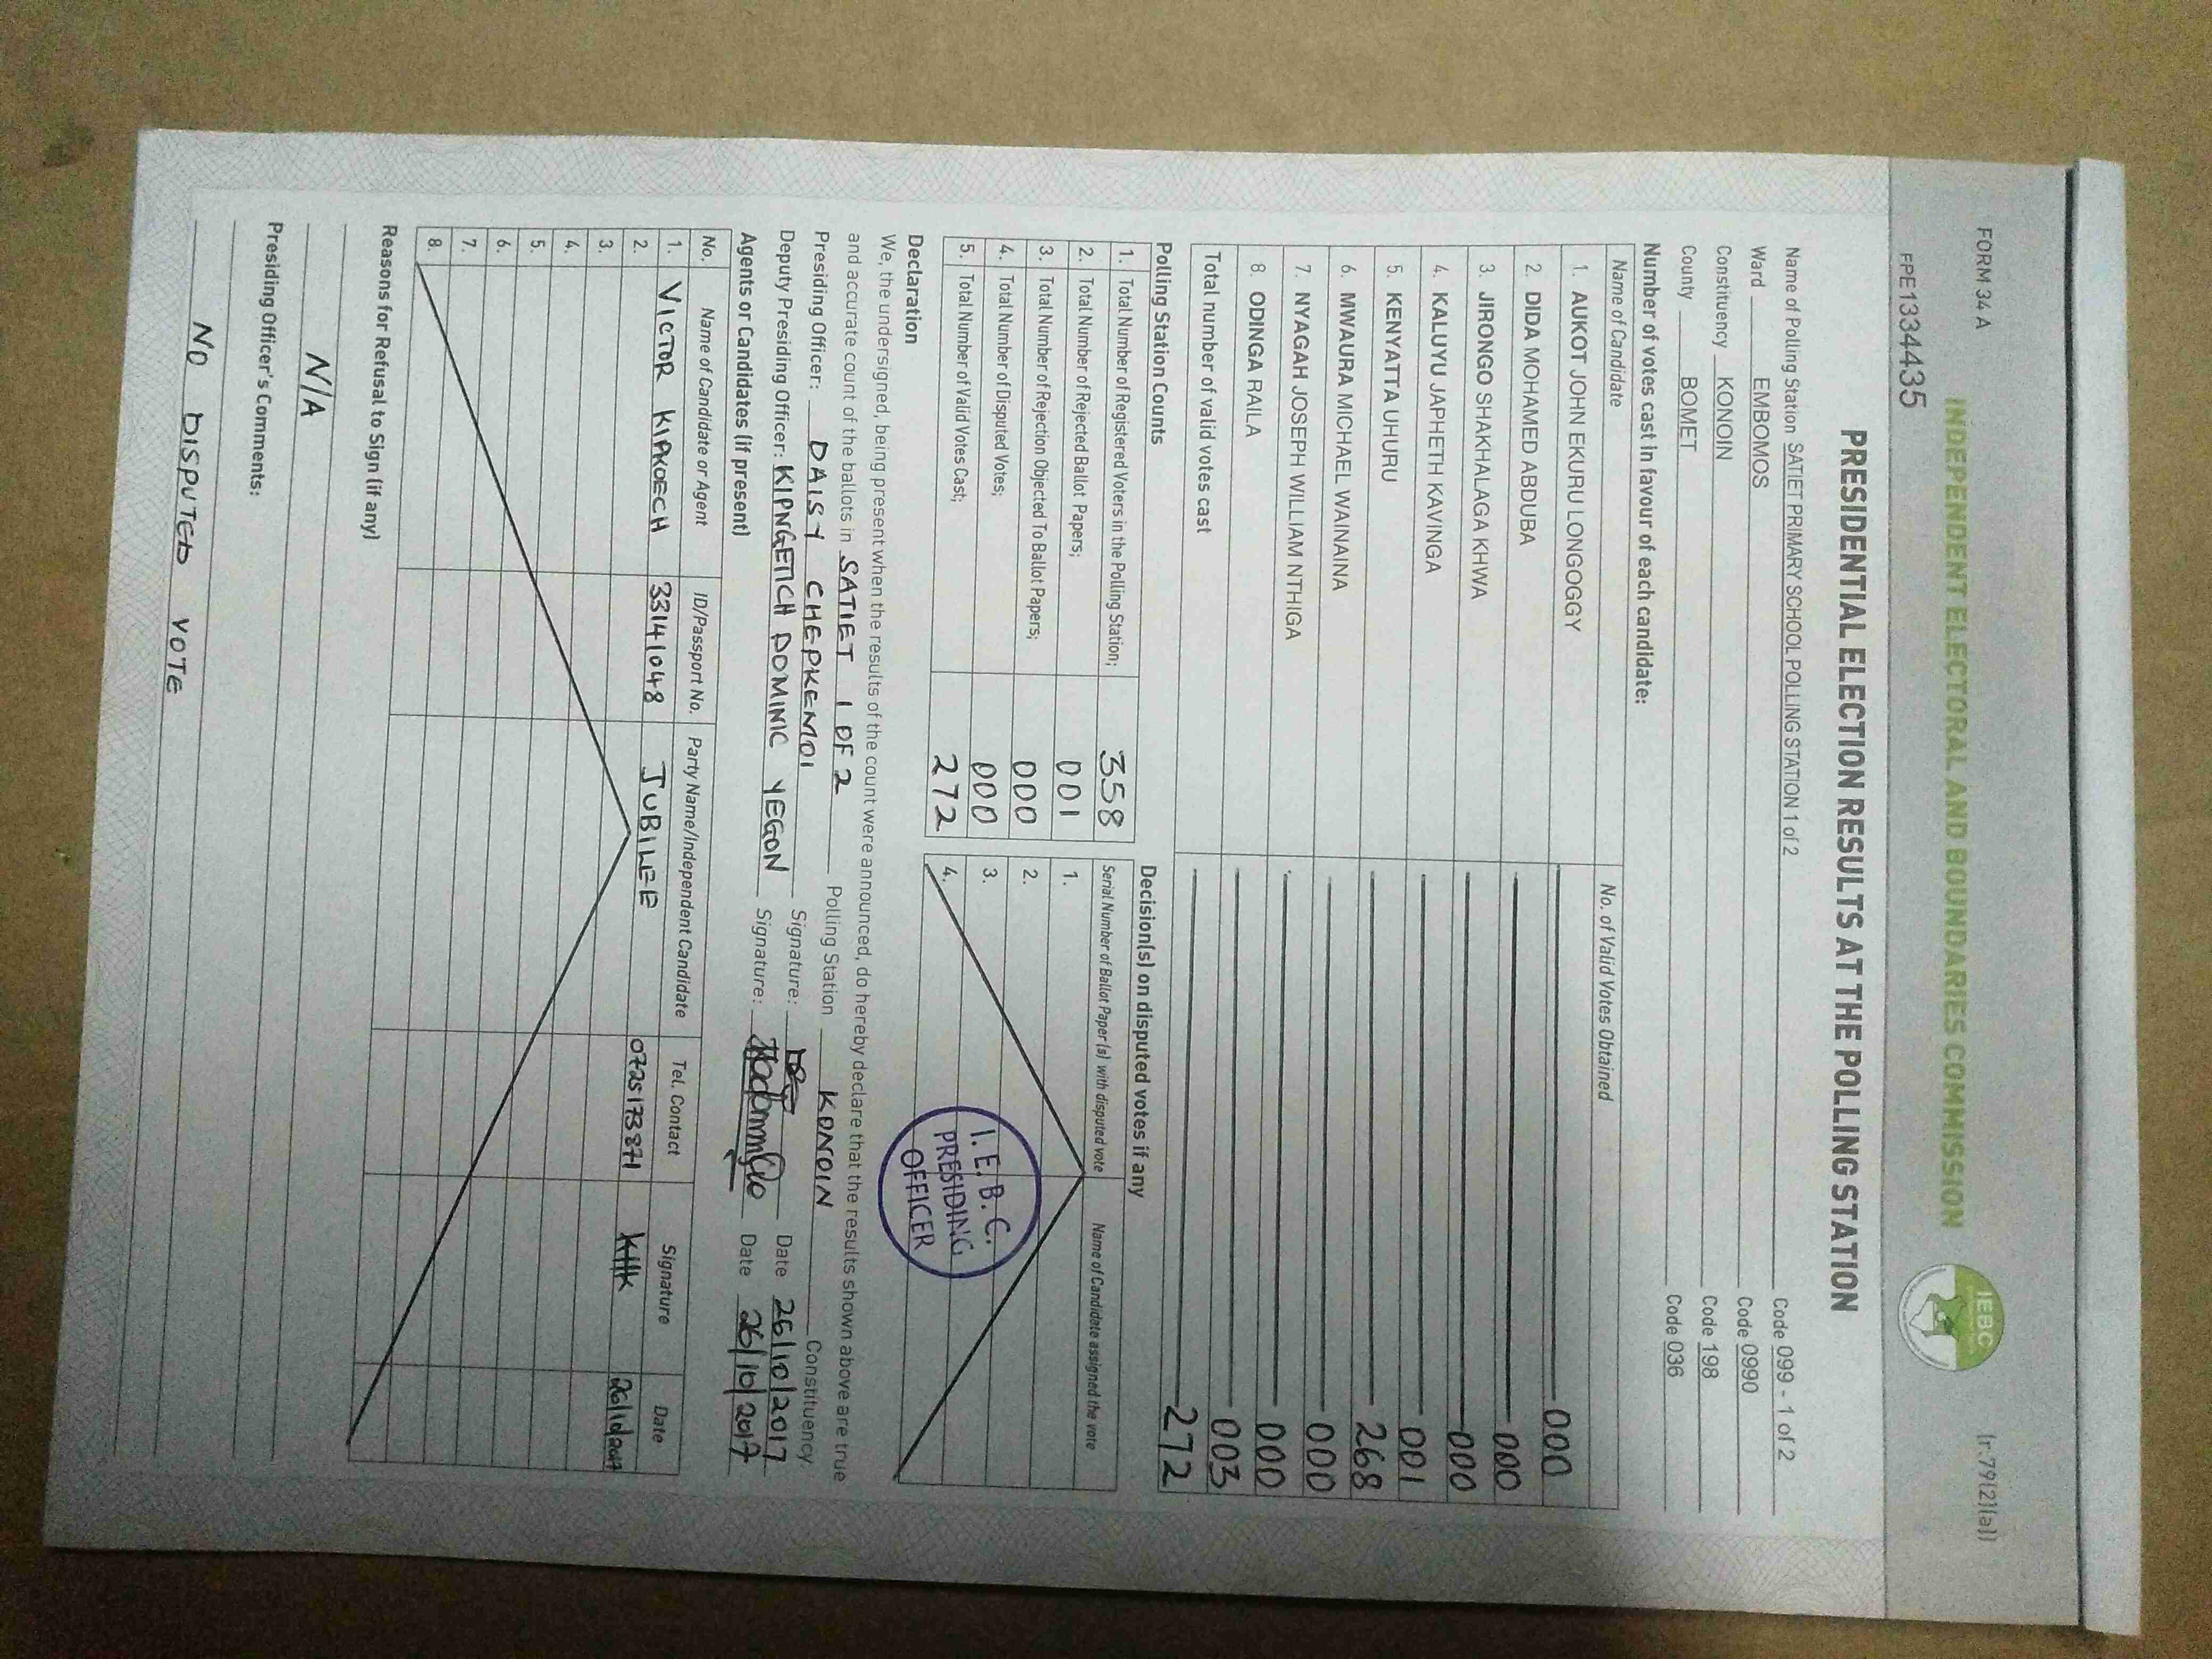 FORM 34 A
[r.79(2)(a)]
INDEPENDENT ELECTORAL AND BOUNDARIES COMMISSION
IEBC
FPE1334435
PRESIDENTIAL ELECTION RESULTS AT THE POLLING STATION
Name of Polling Station SATIET PRIMARY SCHOOL POLLING STATION 1 of 2 Code 099 - 1 of 2
Ward EMBOMOS Code 0990
Constituency KONOIN Code 198
County BOMET Code 036
Number of votes cast in favour of each candidate:
Name of Candidate No. of Valid Votes Obtained
1. AUKOT JOHN EKURU LONGOGGY 000
2. DIDA MOHAMED ABDUBA 000
3. JIRONGO SHAKHALAGA KHWA 000
4. KALUYU JAPHETH KAVINGA 001
5. KENYATTA UHURU 268
6. MWAURA MICHAEL WAINAINA 000
7. NYAGAH JOSEPH WILLIAM NTHIGA 000
8. ODINGA RAILA 003
Total number of valid votes cast 272
Polling Station Counts
1. Total Number of Registered Voters in the Polling Station; 358
2. Total Number of Rejected Ballot Papers; 001
3. Total Number of Rejection Objected To Ballot Papers; 000
4. Total Number of Disputed Votes; 000
5. Total Number of Valid Votes Cast; 272
Decision(s) on disputed votes if any
Serial Number of Ballot Paper(s) with disputed vote Name of Candidate assigned the vote
1.
2.
3.
4.
I.E.B.C.
PRESIDING
OFFICER
Declaration
We, the undersigned, being present when the results of the count were announced, do hereby declare that the results shown above are true
and accurate count of the ballots in SATIET 1 OF 2 Polling Station KONOIN Constituency
Presiding Officer: DAISY CHEPKEMOI Signature: Date 26/10/2017
Deputy Presiding Officer: KIPNGETICH DOMINIC YEGON Signature: Date 26/10/2017
Agents or Candidates (if present)
No. Name of Candidate or Agent ID/Passport No. Party Name/Independent Candidate Tel. Contact Signature Date
1. VICTOR KIPKOECH 33141048 JUBILEE 0725173871 26/10/2017
2.
3.
4.
5.
6.
7.
8.
Reasons for Refusal to Sign (if any)
N/A
Presiding Officer's Comments:
NO DISPUTED VOTE